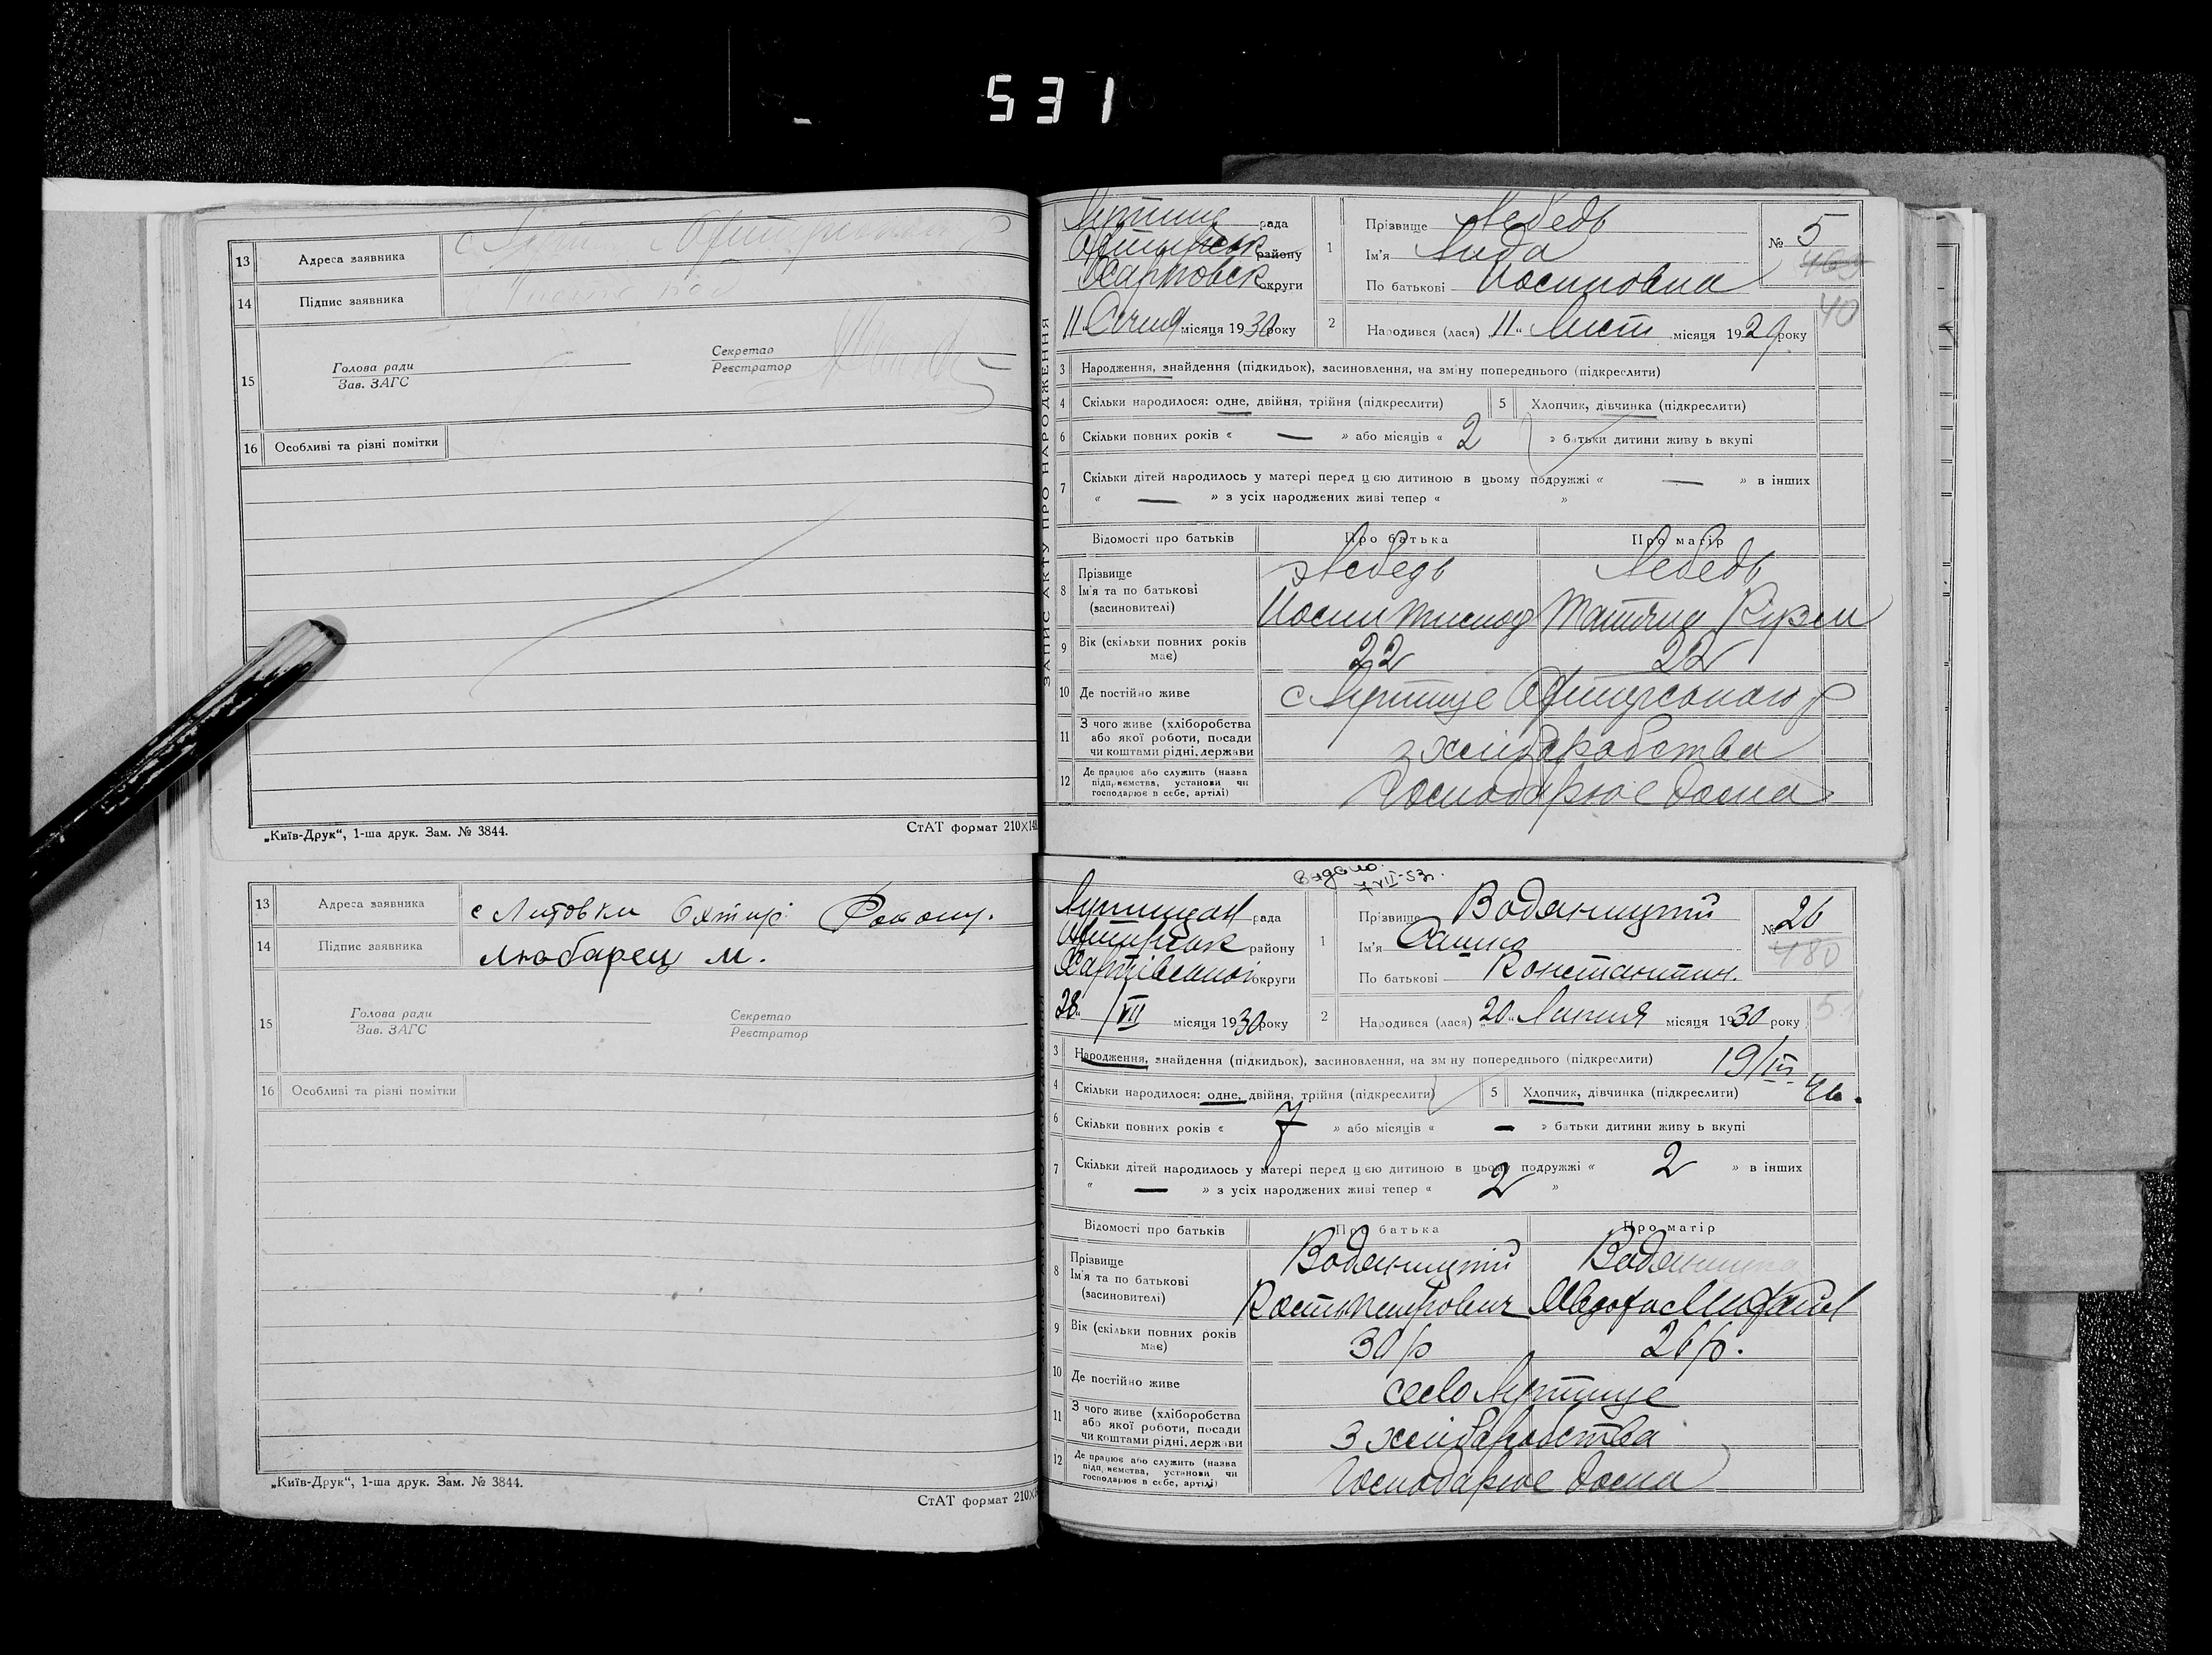 531
13 Адреса заявника
14 Підпис заявника
15 Голова ради
Зав. ЗАГС
Секретар
Реєстратор
16 Особливі та різні помітки
„Київ-Друк“, 1-ша друк. Зам. № 3844.
СтАТ формат 210×148
13 Адреса заявника с Литовки Охтир
14 Підпис заявника Любарец М.
15 Голова ради
Зав. ЗАГС
Секретар
Реєстратор
16 Особливі та різні помітки
„Київ-Друк“, 1-ша друк. Зам. № 3844.
СтАТ формат 210×
ЗАПИС АКТУ ПРО НАРОДЖЕННЯ
рада
району
округи
11 місяця 1930 року
1 Прізвище Лебедь
Ім'я Лида
По батькові Иосиповна
№ 5
40
2 Народився (лася) „11“ Лист місяця 1929 року
3 Народження, знайдення (підкидьок), засиновлення, на зміну попереднього (підкреслити)
4 Скільки народилося: одне, двійня, трійня (підкреслити)
5 Хлопчик, дівчинка (підкреслити)
6 Скільки повних років « — » або місяців « 2 » батьки дитини живу ь вкупі
7 Скільки дітей народилось у матері перед цією дитиною в цьому подружжі « — » в інших
« — » з усіх народжених живі тепер « »
Відомості про батьків Про батька Про матір
8 Прізвище Лебедь Лебедь
Ім'я та по батькові
(засновителі) Иосип
9 Вік (скільки повних років має) 22 22
10 Де постійно живе
11 З чого живе (хліборобства або якої роботи, посади чи коштами рідні, держави з хліборобства
12 Де працює або служить (назва підприємства, установи чи господарює в себе, артілі) Господарює дома
Видано
7 VII-53.
рада
району
округи
28 / VII місяця 1930 року
1 Прізвище Водяницкій
Ім'я Сашко
По батькові Константин.
№ 26
480
2 Народився (лася) „20“ Липня місяця 1930 року
3 Народження, знайдення (підкидьок), засиновлення, на зміну попереднього (підкреслити)
19/IV
46.
4 Скільки народилося: одне, двійня, трійня (підкреслити)
5 Хлопчик, дівчинка (підкреслити)
6 Скільки повних років « 7 » або місяців « — » батьки дитини живу ь вкупі
7 Скільки дітей народилось у матері перед цією дитиною в цьому подружжі « 2 » в інших
« — » з усіх народжених живі тепер « 2 »
Відомості про батьків Про батька Про матір
8 Прізвище Водяницкій Водяницка
Ім'я та по батькові
(засновителі) Петрович
9 Вік (скільки повних років має) 30 р 26 р.
10 Де постійно живе село
11 З чого живе (хліборобства або якої роботи, посади чи коштами рідні, держави З хліборобства
12 Де працює або служить (назва підприємства, установи чи господарює в себе, артілі) Господарює дома